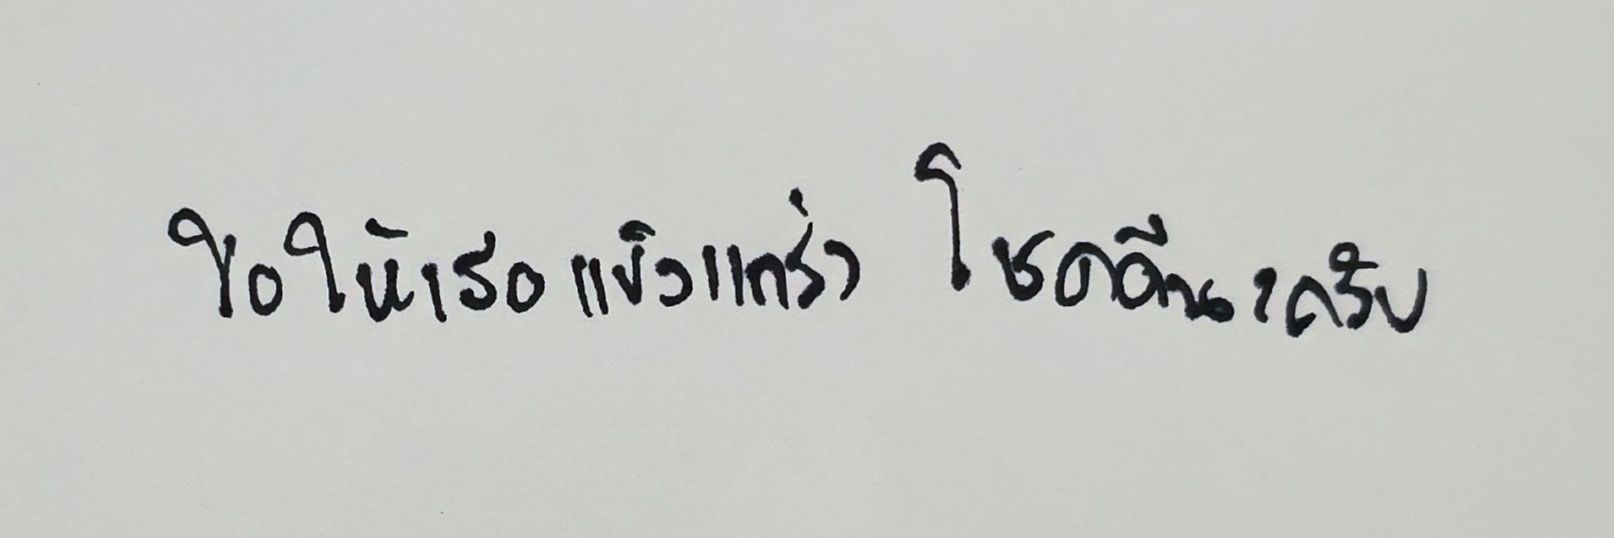 ขอให้เธอแข็งแกร่ง โชคดีนะครับ